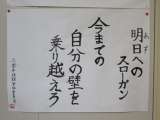 明日への
あす
スローガン
今までの
自分の壁を
乗り越えろ